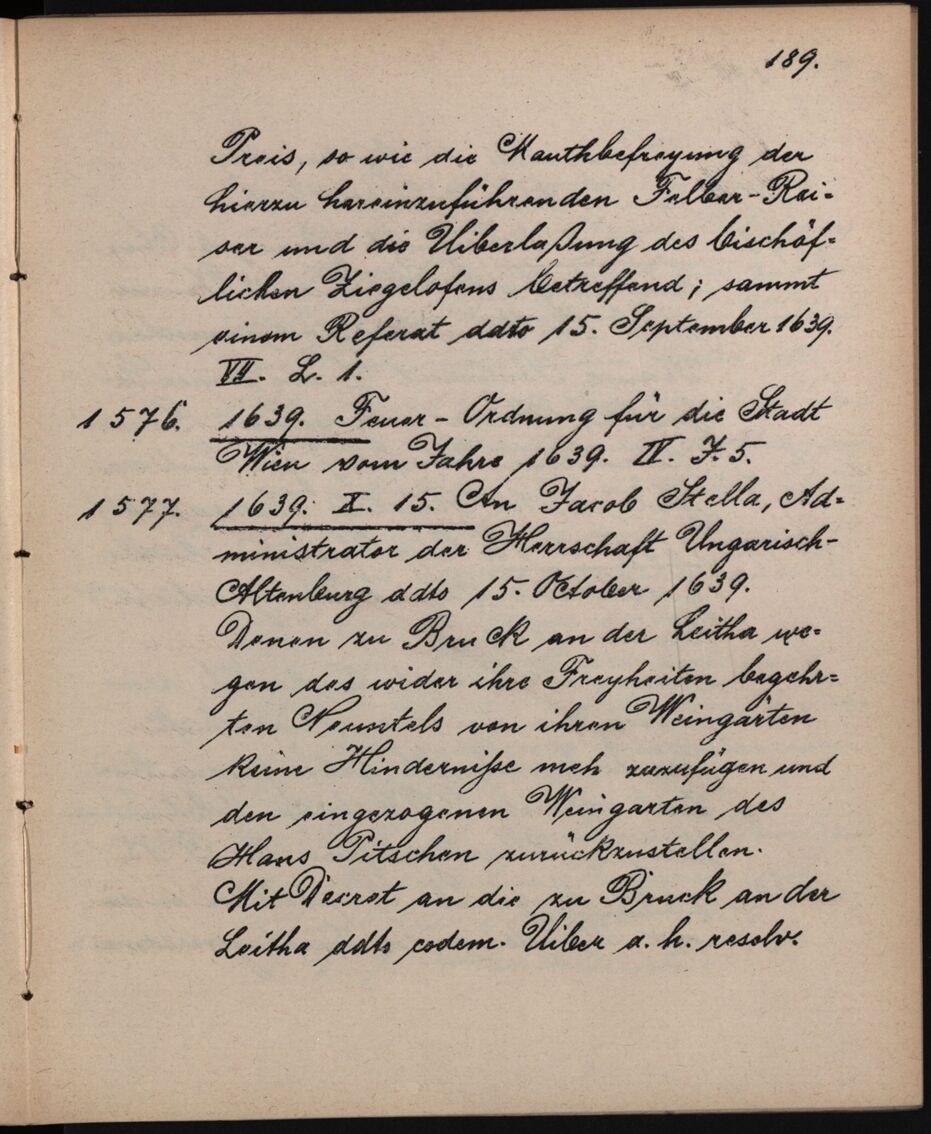 189.
Preis, so wie die Mauthbefreyung der
hierzu hereinzuführenden Felber-Rei=
ser und die Uiberlaßung des bischöf=
lichen Ziegelofens betreffend; sammt
einem Referat ddto 15. September 1639.
VII. L. 1.
1576. 1639. Feuer-Ordnung für die Stadt
Wien vom Jahre 1639. IV. F. 5.
1577. 1639. X. 15. An Jacob Stella, Ad=
ministrator der Herrschaft Ungarisch-
Altenburg ddto 15. October 1639.
Denen zu Bruck an der Leitha we=
gen des wider ihre Freyheiten begehr=
ten Neuntels von ihren Weingärten
keine Hinderniße meh zuzufügen und
den eingezogenen Weingarten des
Hans Pitschen zurückzustellen.
Mit Decret an die zu Bruck an der
Leitha ddto eodem. Uiber a. h. resolv.